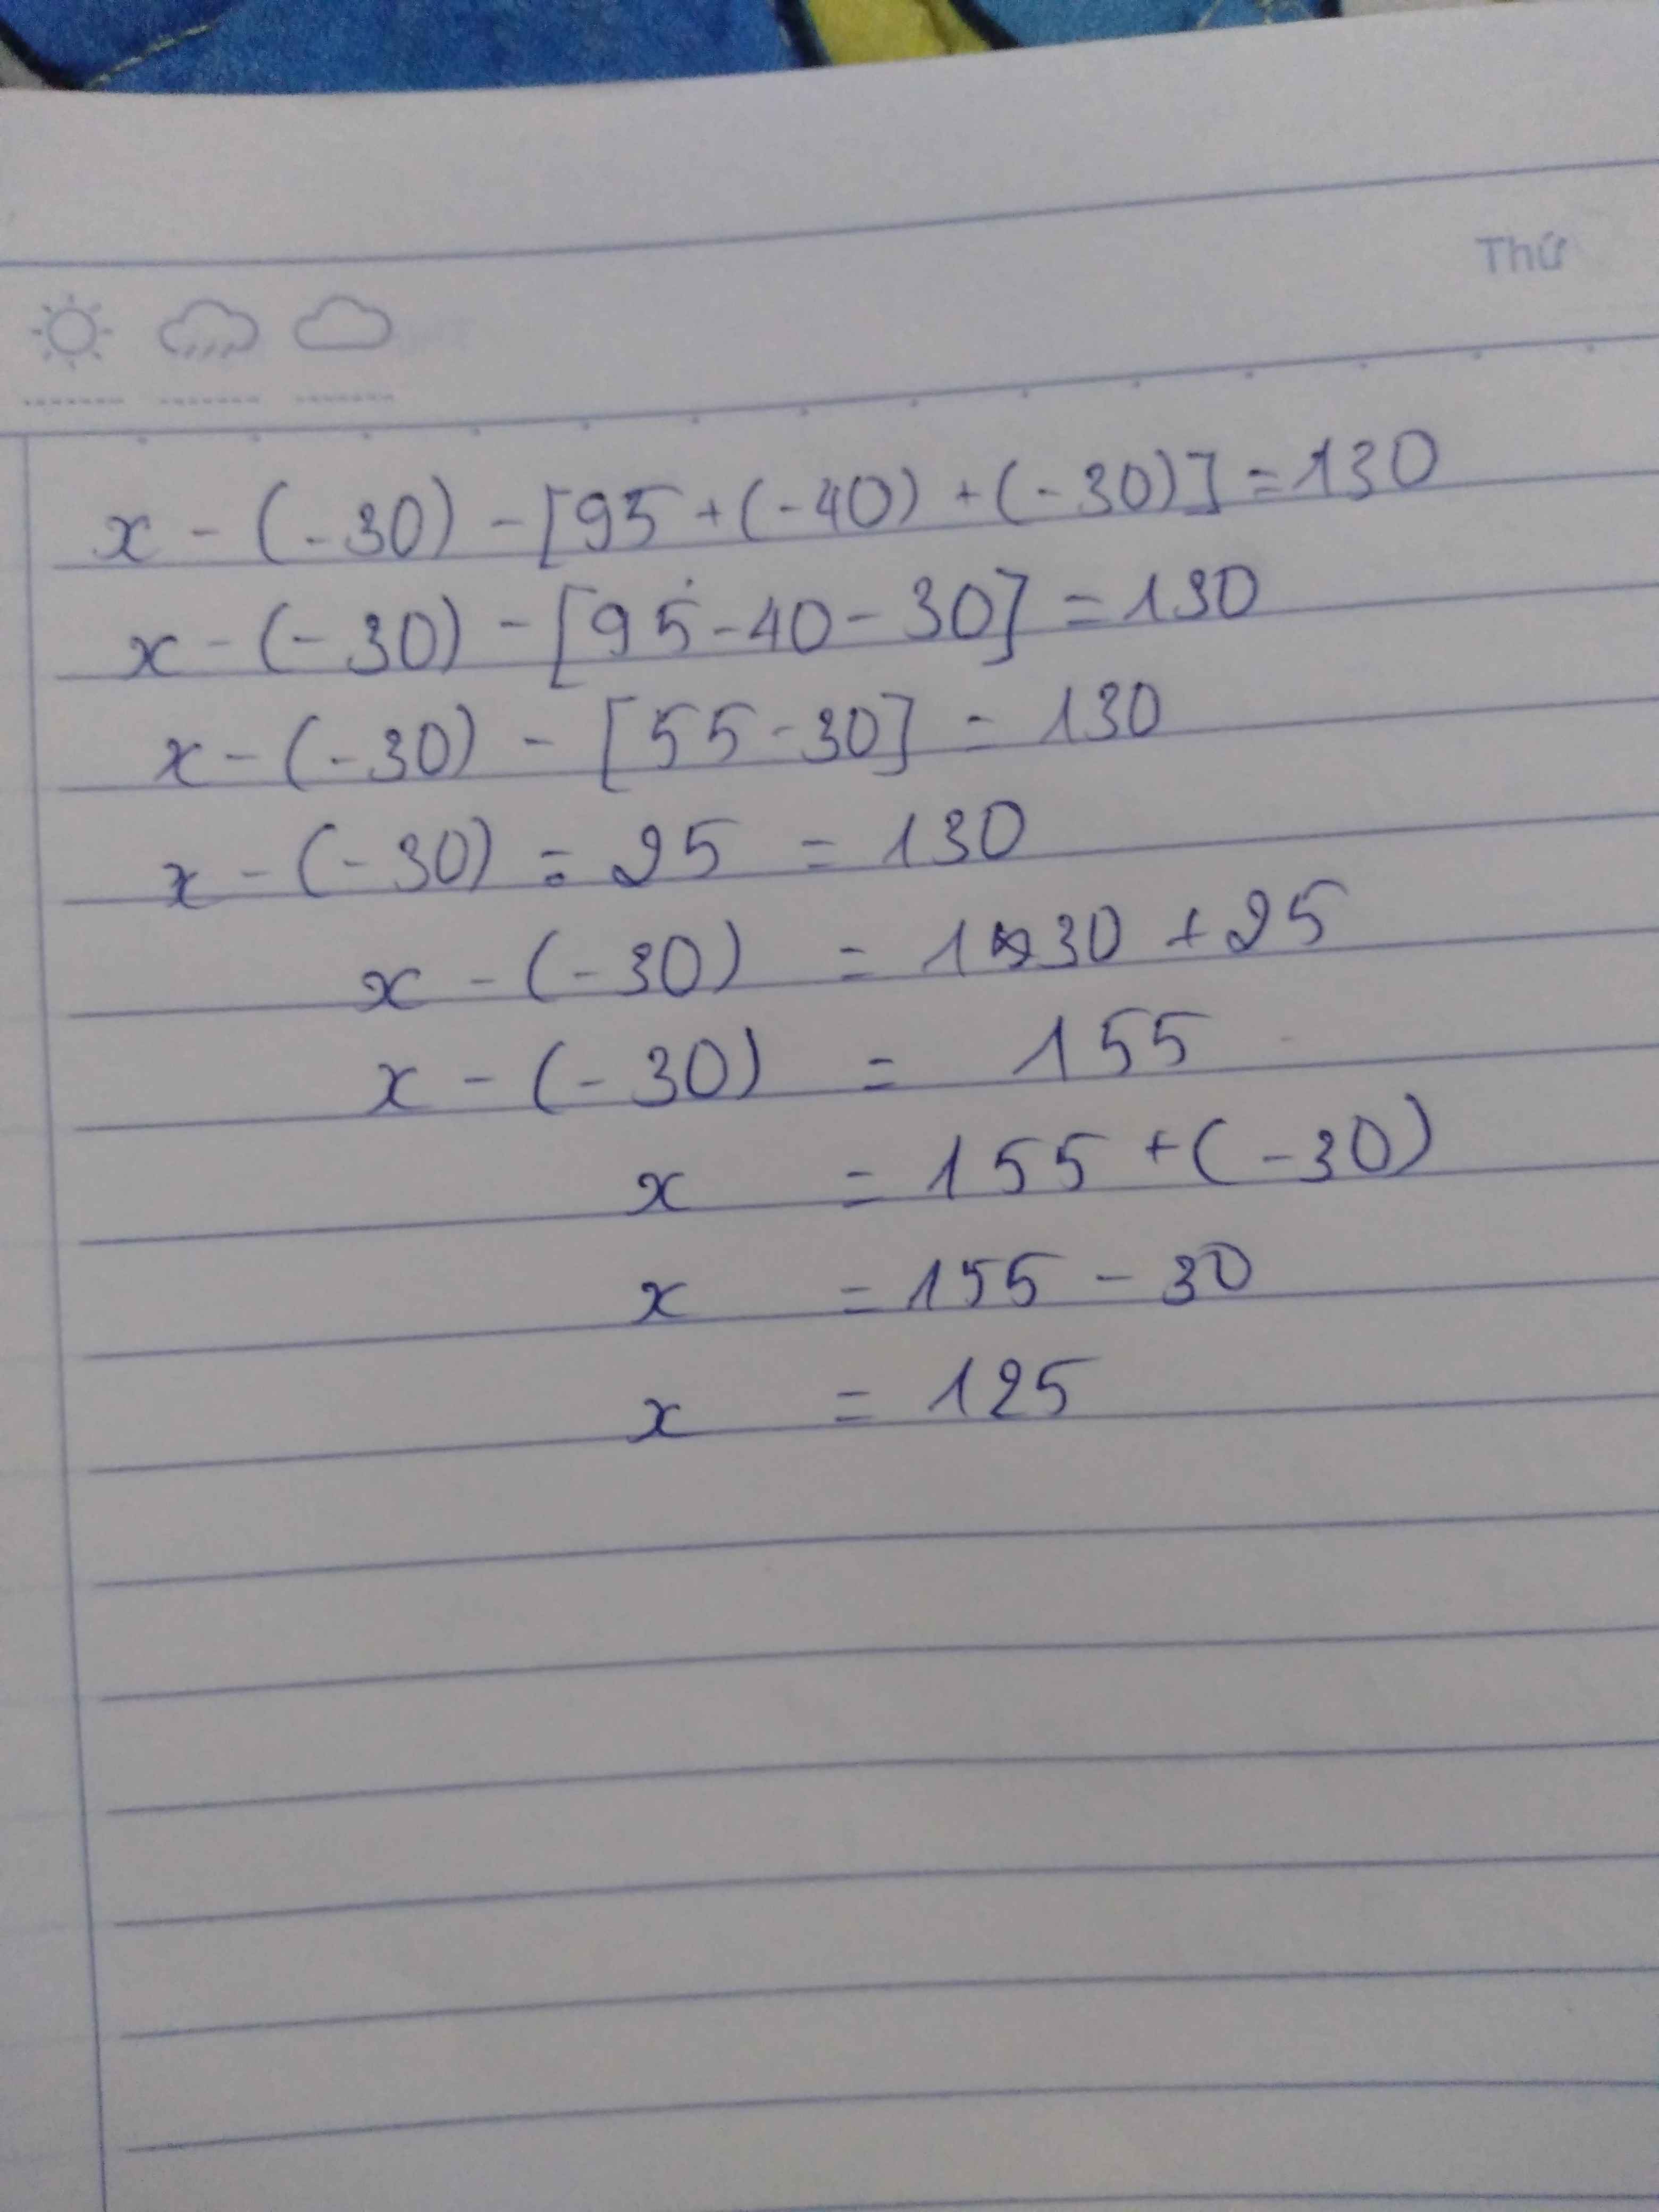 Thứ
x - (-30) - [95 + (-40) + (-30)] = 130
x - (-30) - [95 - 40 - 30] = 130
x - (-30) - [55 - 30] = 130
x - (-30) = 25 = 130
x - (-30) = 130 + 25
x - (-30) = 155
x = 155 + (-30)
x = 155 - 30
x = 125